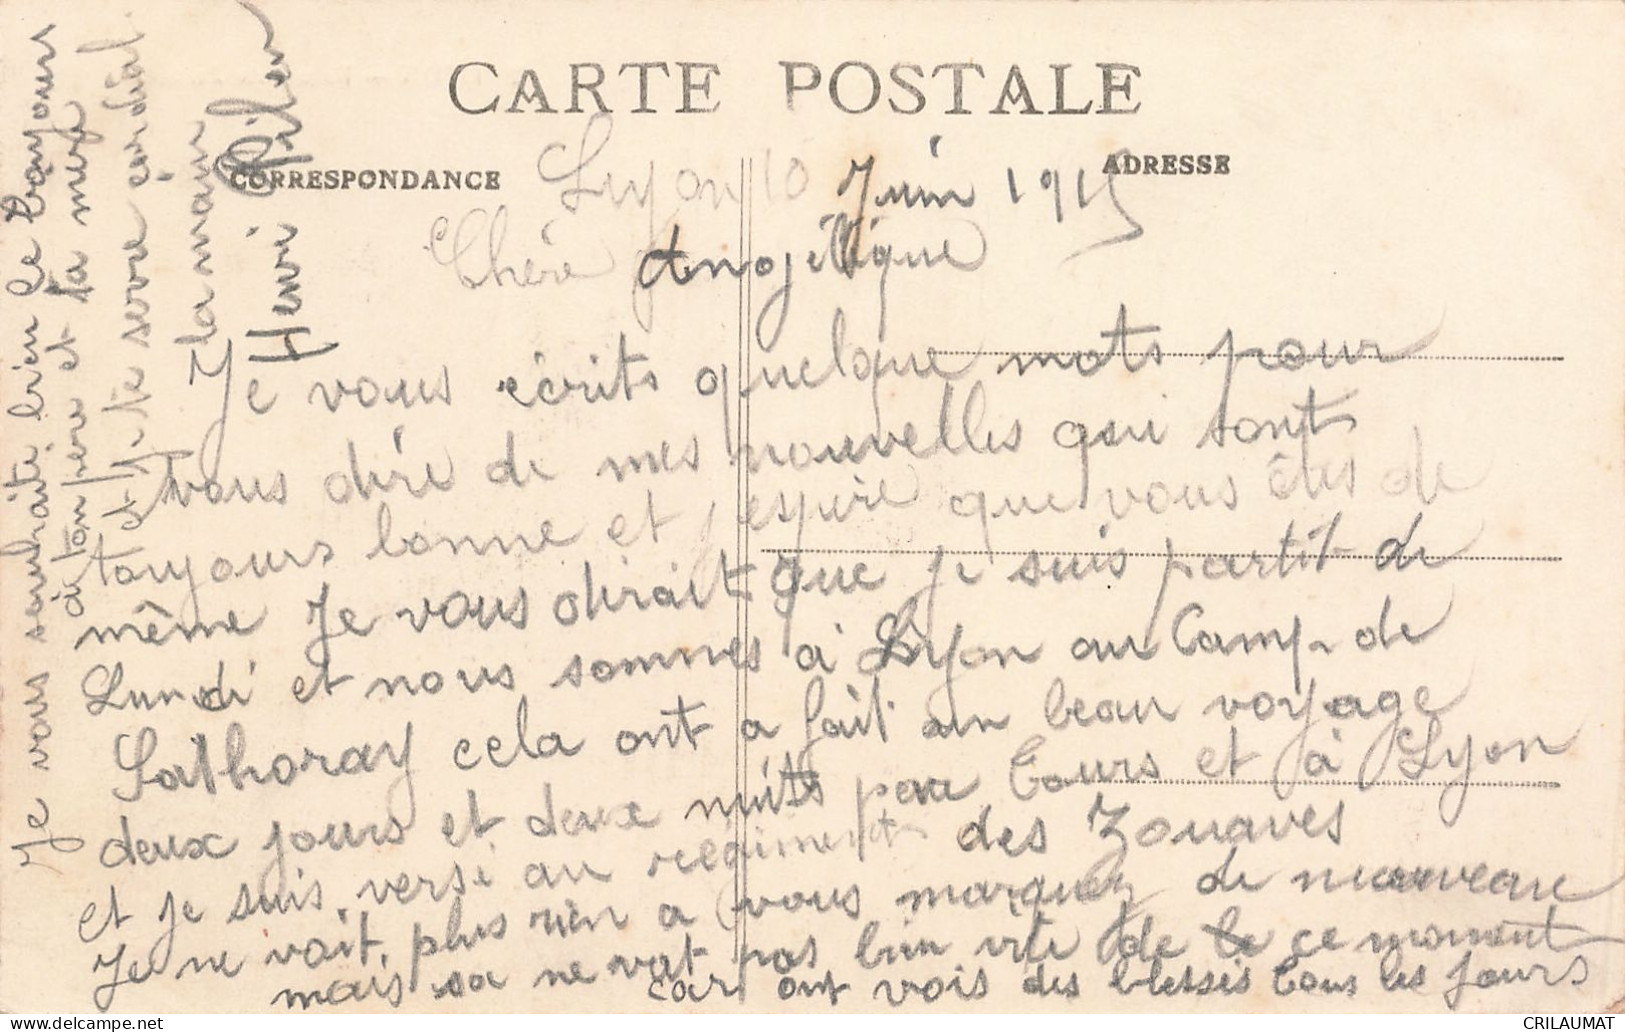 CARTE POSTALE
CORRESPONDANCE
ADRESSE
Lyon 10 Juin 1915
Chére Angéllique
Je vous écrits quelque mots pour
vous dire de mes nouvelles qui sont
toujours bonne et j'espére que vous êtes de
même Je vous dirait que je suis partit de
Lundi et nous sommes à Lyon au Camp de
Sathonay cela ont a fait un beau voyage
deux jours et deux nuits par Tours et à Lyon
et je suis versé au regiment des Zouaves
Je ne voit plus rien a vous marquez de nouveau
mais sa ne vat pas bien vite de ce moment
car ont vois des blessés tous les jours
Je vous souhaite bien le bonjour
à ton pere et ta mere
et je te serre cordial.
la main
Henri
www.delcampe.net
CRILAUMAT